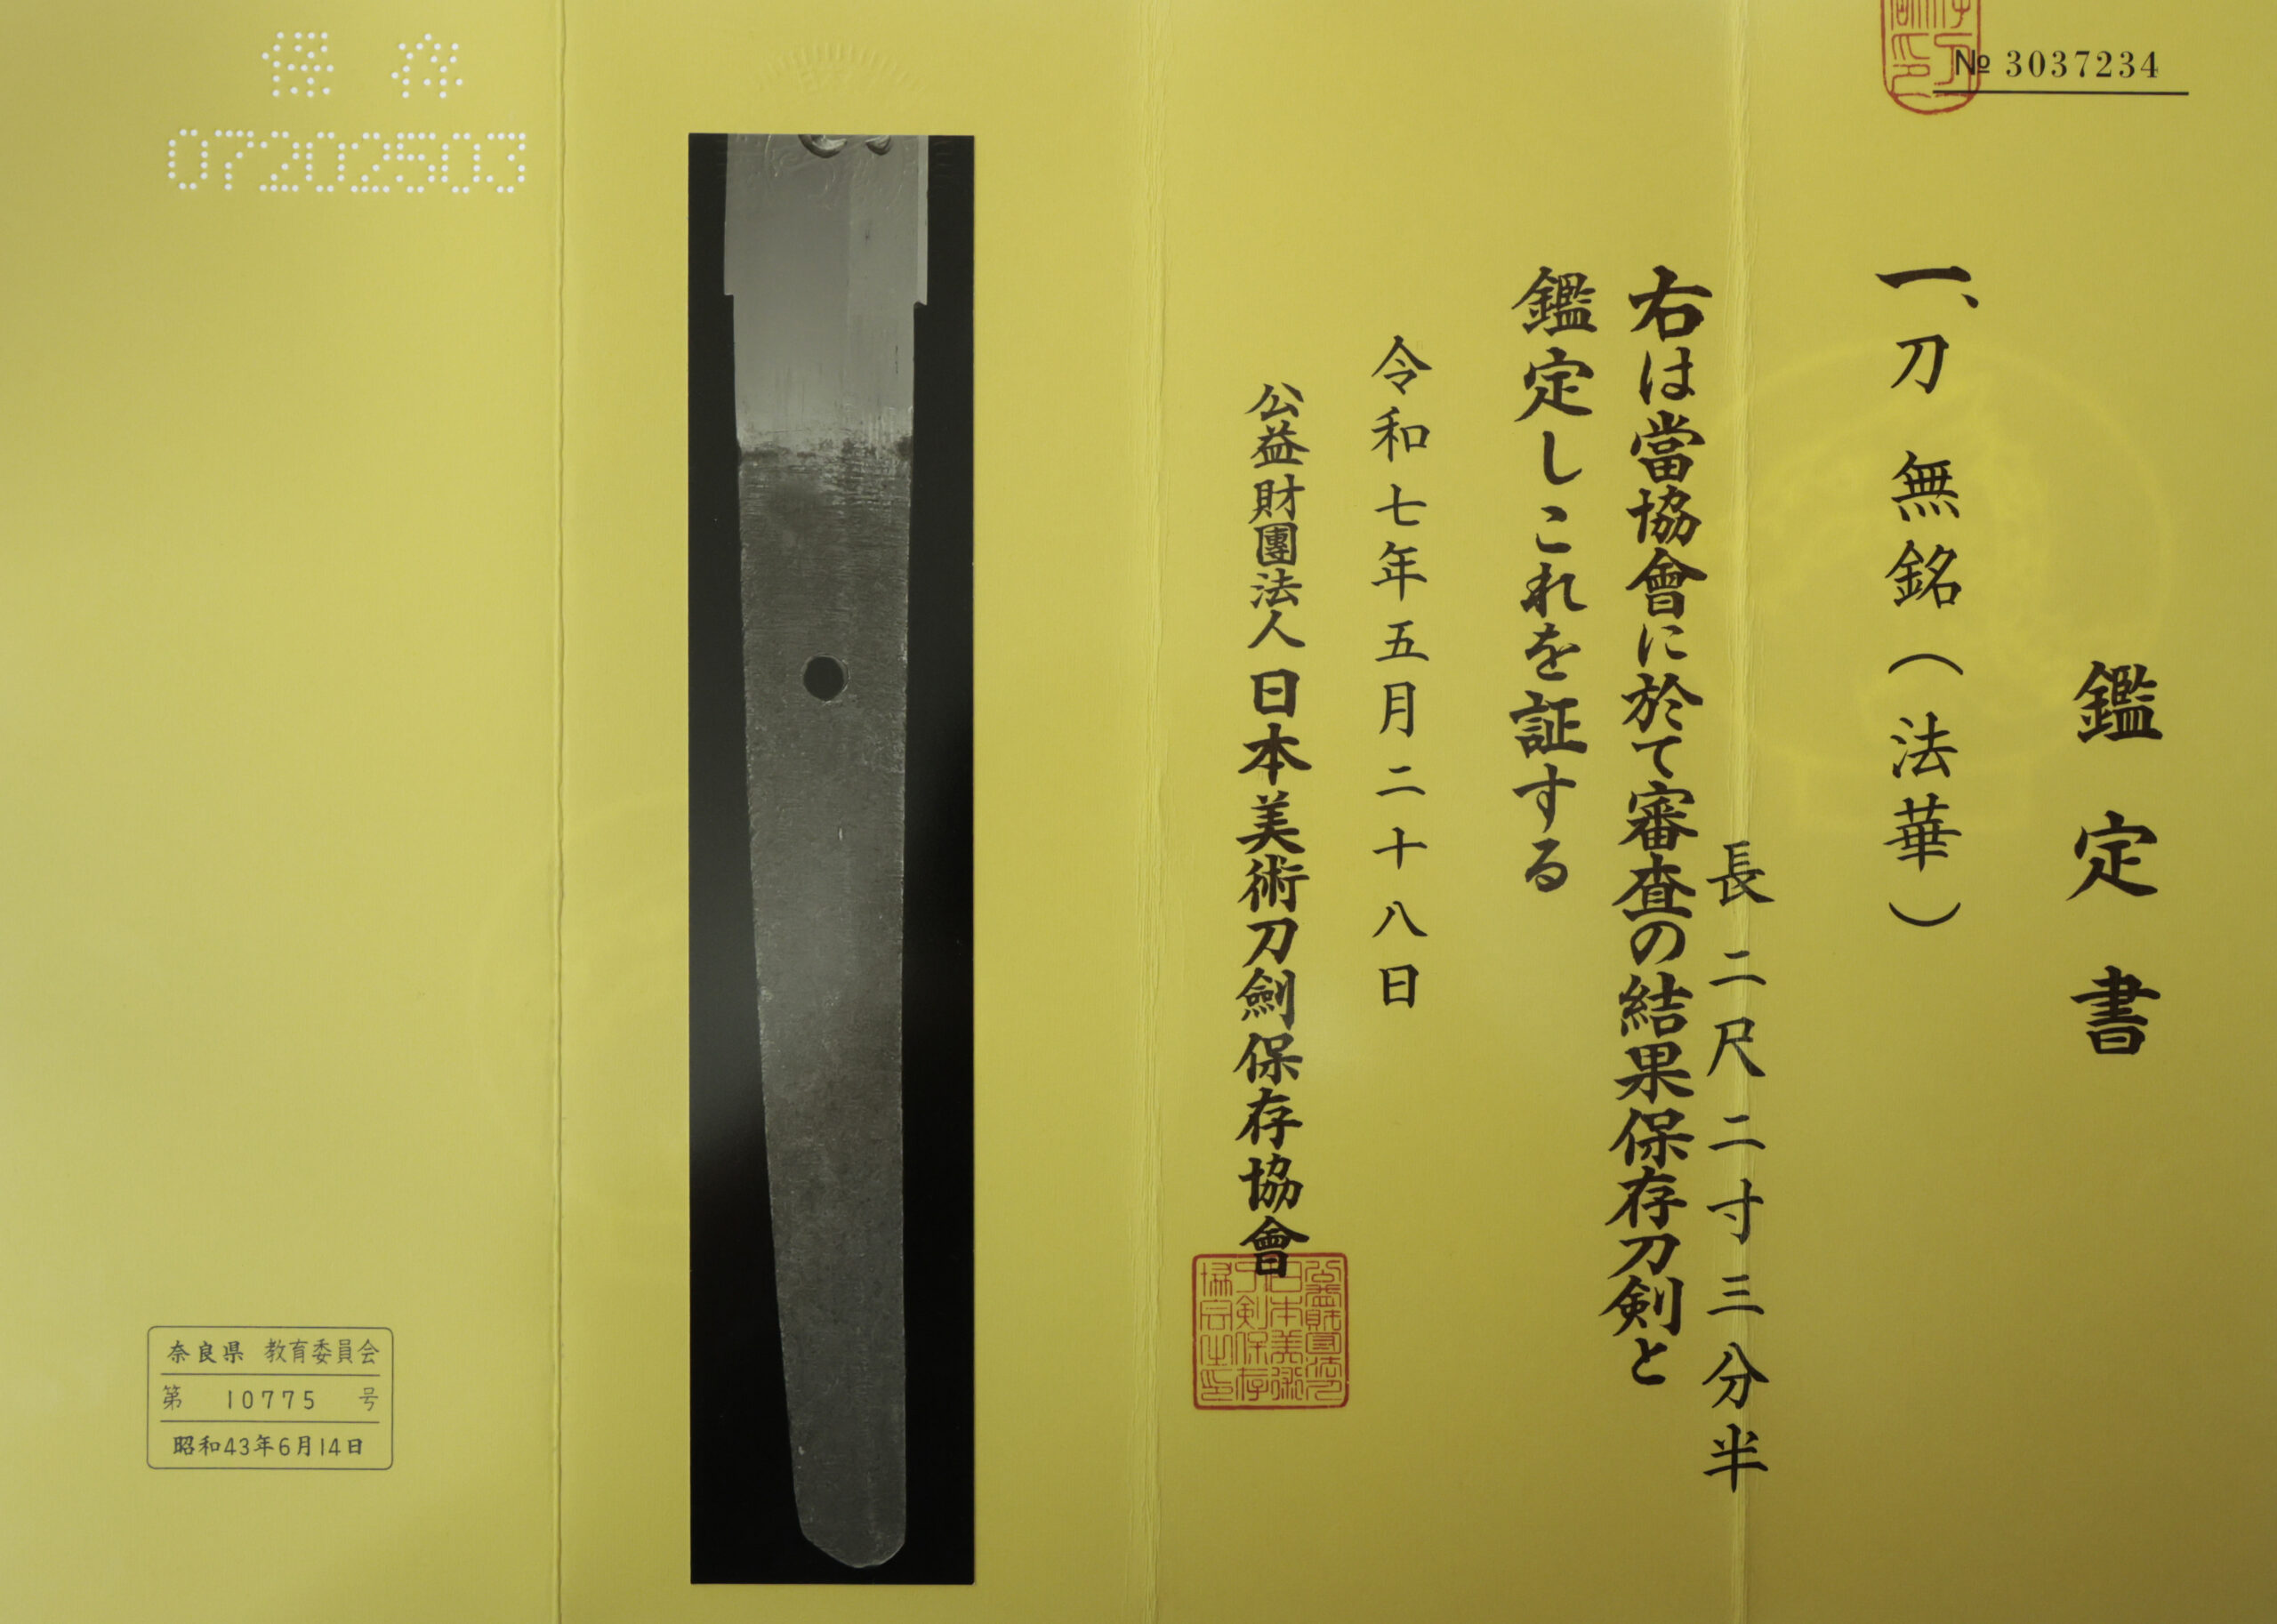 № 3037234
鑑定書
一、刀 無銘(法華)
長 二尺二寸三分半
右は當協會に於て審査の結果保存刀剣と
鑑定しこれを証する
令和七年五月二十八日
公益財團法人 日本美術刀劍保存協會
保存
07202503
奈良県 教育委員会
第 10775 号
昭和43年6月14日